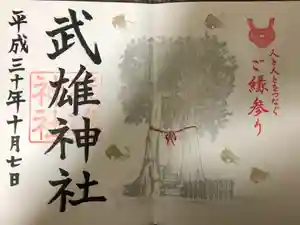 人と人とをつなぐ
ご縁参り
武雄神社
平成三十年十月七日